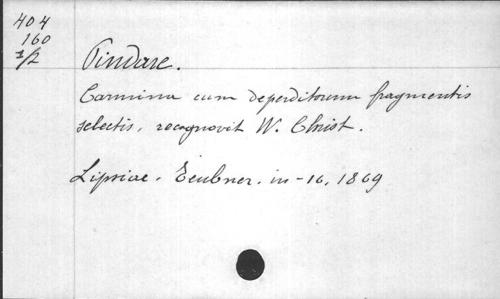 404
160
1/2
Pindare.
Carmina cum deperditorum fragmentis
selectis, recognovit W. Christ.
Lipsiae, Teubner. in-16, 1869